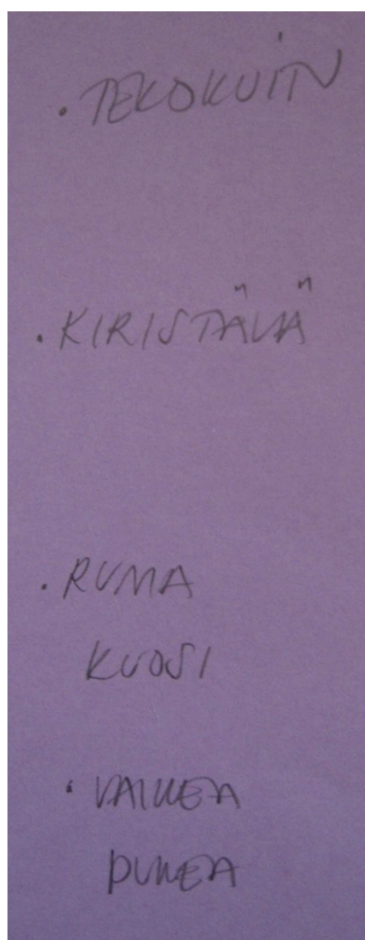 · TEKOKUITU
· KIRISTÄVÄ
· RUMA
KUOSI
· VAIKEA
PUKEA